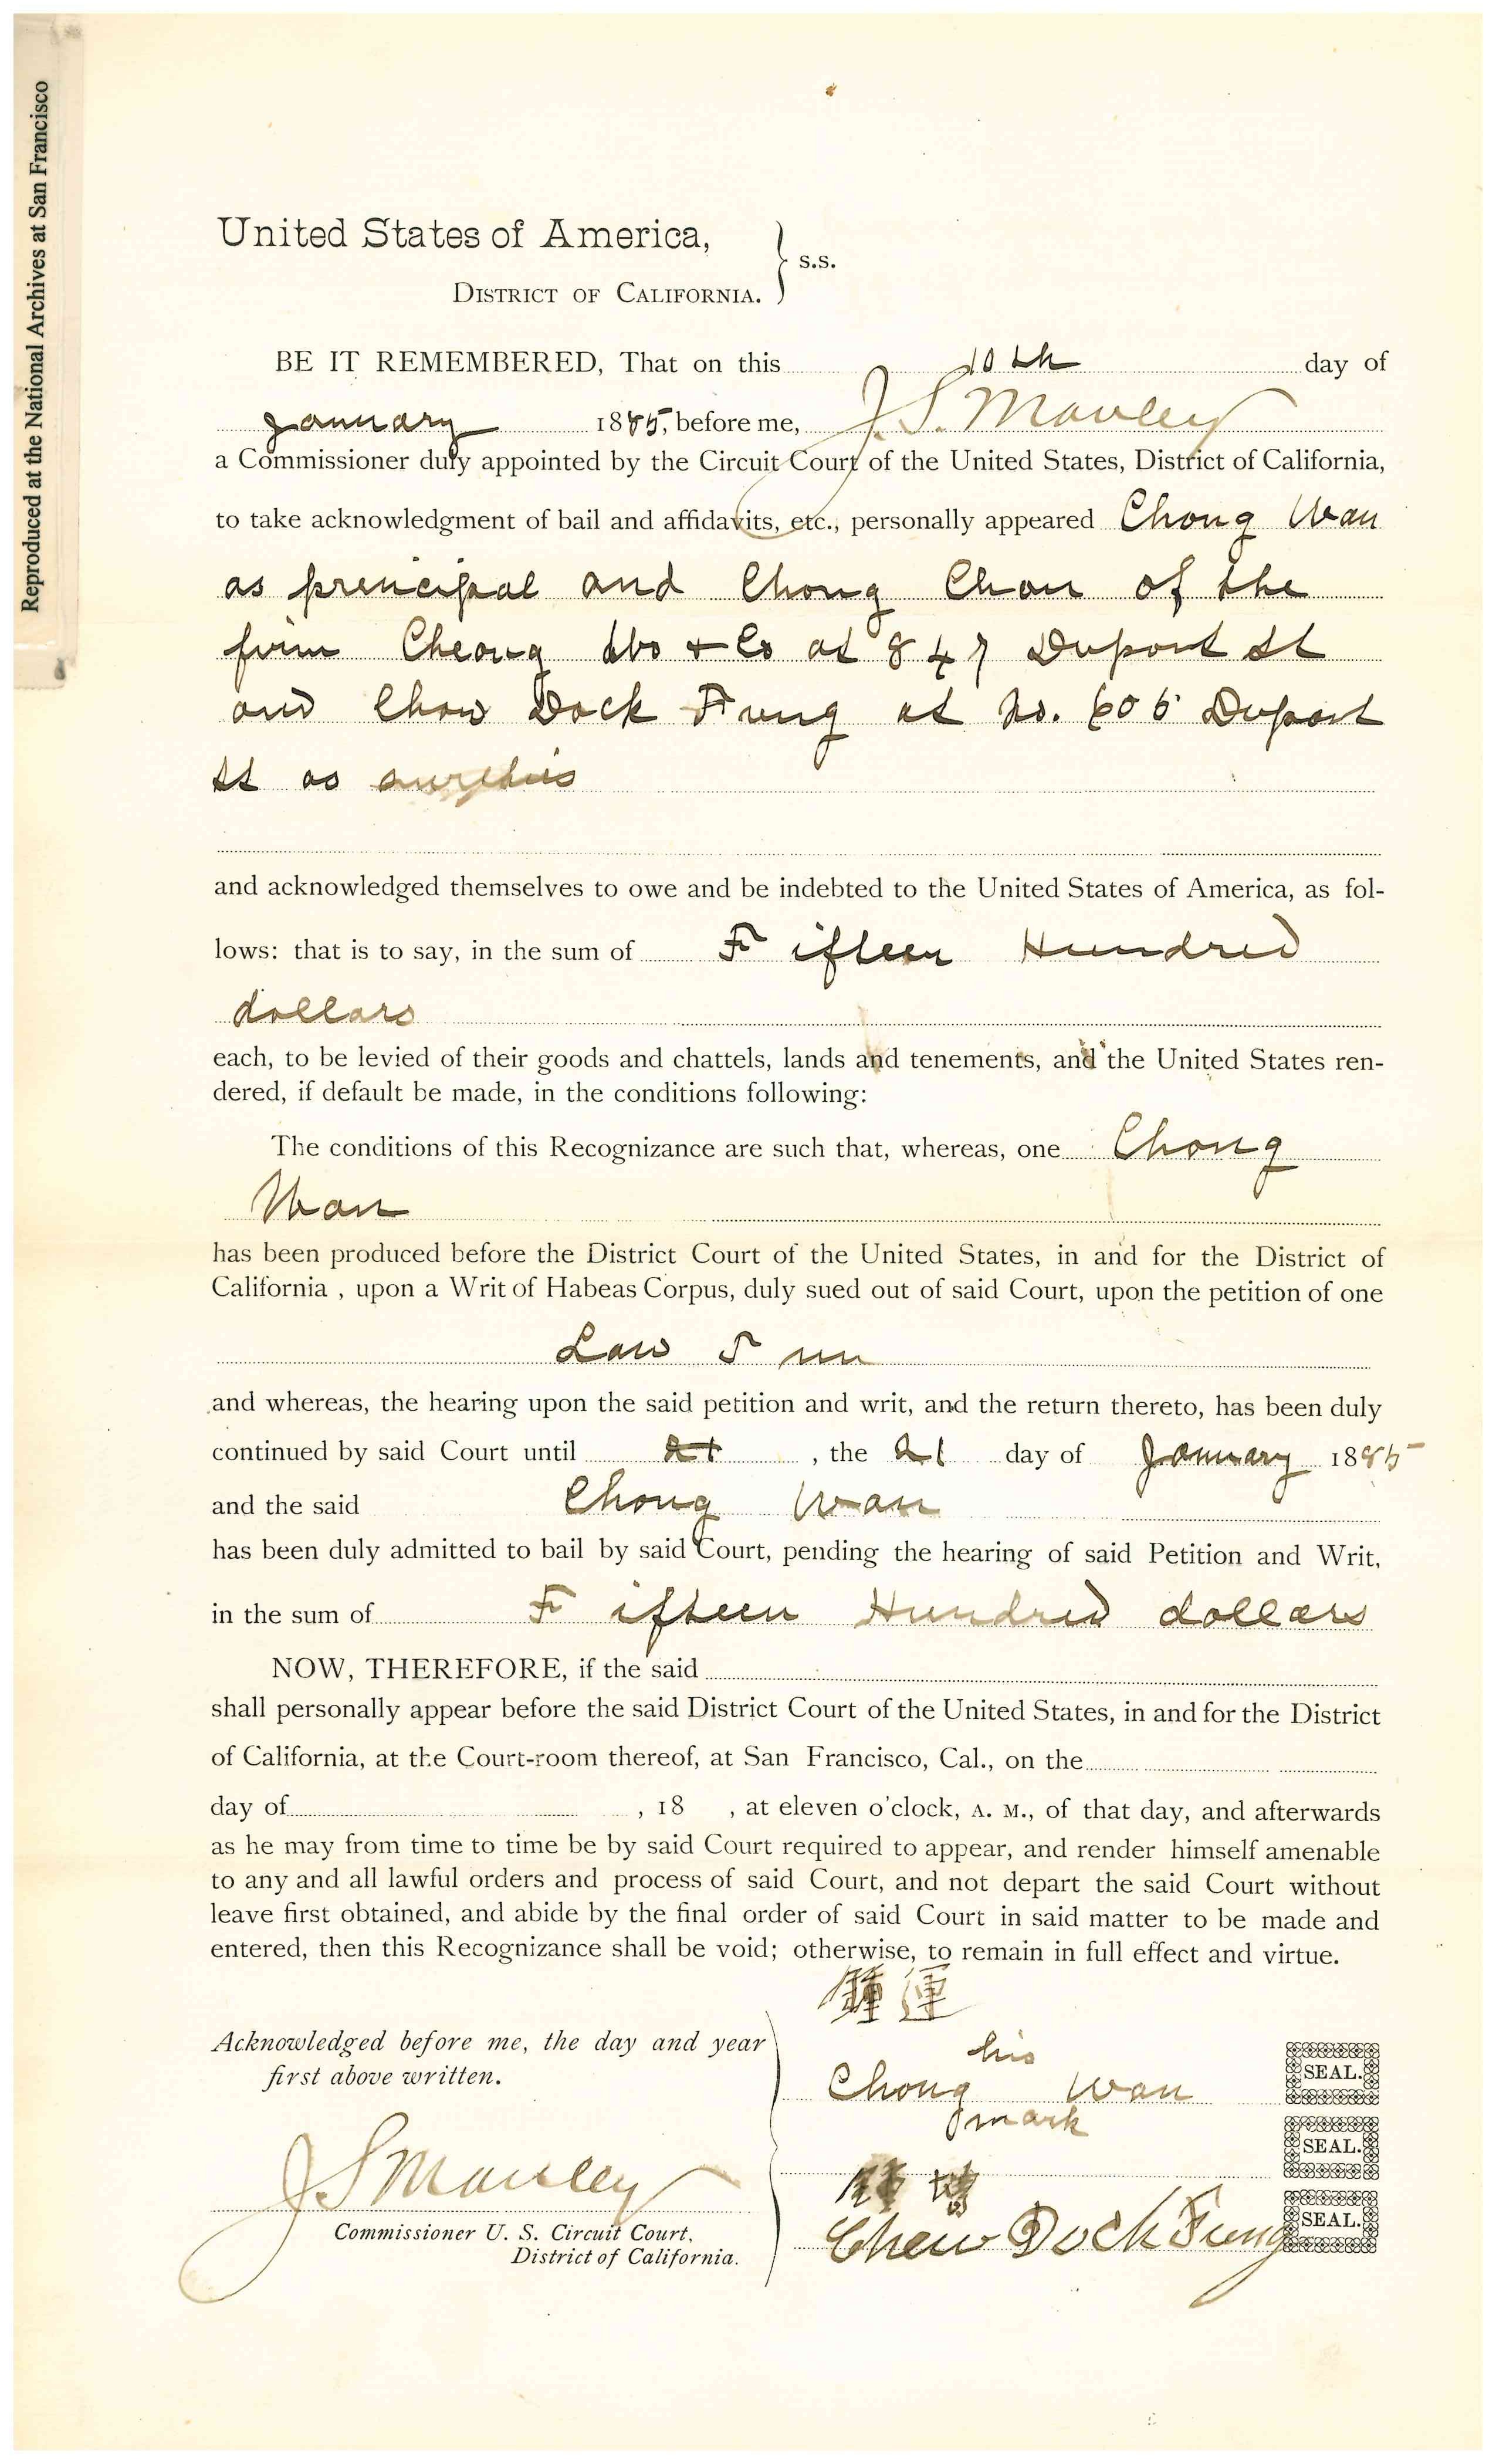 Reproduced at the National Archives at San Francisco
United States of America,
DISTRICT OF CALIFORNIA. } s.s.
BE IT REMEMBERED, That on this 10th day of
January 1885, before me, J. S. Manley
a Commissioner duly appointed by the Circuit Court of the United States, District of California,
to take acknowledgment of bail and affidavits, etc., personally appeared Chong Wan
as principal and Chong Chan of the
firm Cheong Wo + Co at 847 Dupont St
and Chow Dock Fung at No. 606 Dupont
St as sureties
and acknowledged themselves to owe and be indebted to the United States of America, as fol-
lows: that is to say, in the sum of Fifteen Hundred
dollars
each, to be levied of their goods and chattels, lands and tenements, and the United States ren-
dered, if default be made, in the conditions following:
The conditions of this Recognizance are such that, whereas, one Chong
Wan
has been produced before the District Court of the United States, in and for the District of
California , upon a Writ of Habeas Corpus, duly sued out of said Court, upon the petition of one
Law
and whereas, the hearing upon the said petition and writ, and the return thereto, has been duly
continued by said Court until 21 , the 21 day of January 1885
and the said Chong Wan
has been duly admitted to bail by said Court, pending the hearing of said Petition and Writ,
in the sum of Fifteen Hundred dollars
NOW, THEREFORE, if the said
shall personally appear before the said District Court of the United States, in and for the District
of California, at the Court-room thereof, at San Francisco, Cal., on the
day of , 18 , at eleven o'clock, A. M., of that day, and afterwards
as he may from time to time be by said Court required to appear, and render himself amenable
to any and all lawful orders and process of said Court, and not depart the said Court without
leave first obtained, and abide by the final order of said Court in said matter to be made and
entered, then this Recognizance shall be void; otherwise, to remain in full effect and virtue.
鍾運
Acknowledged before me, the day and year
first above written.
his
Chong Wan SEAL.
mark
SEAL.
J S Manley
Chew Dock Fung SEAL.
Commissioner U. S. Circuit Court,
District of California.